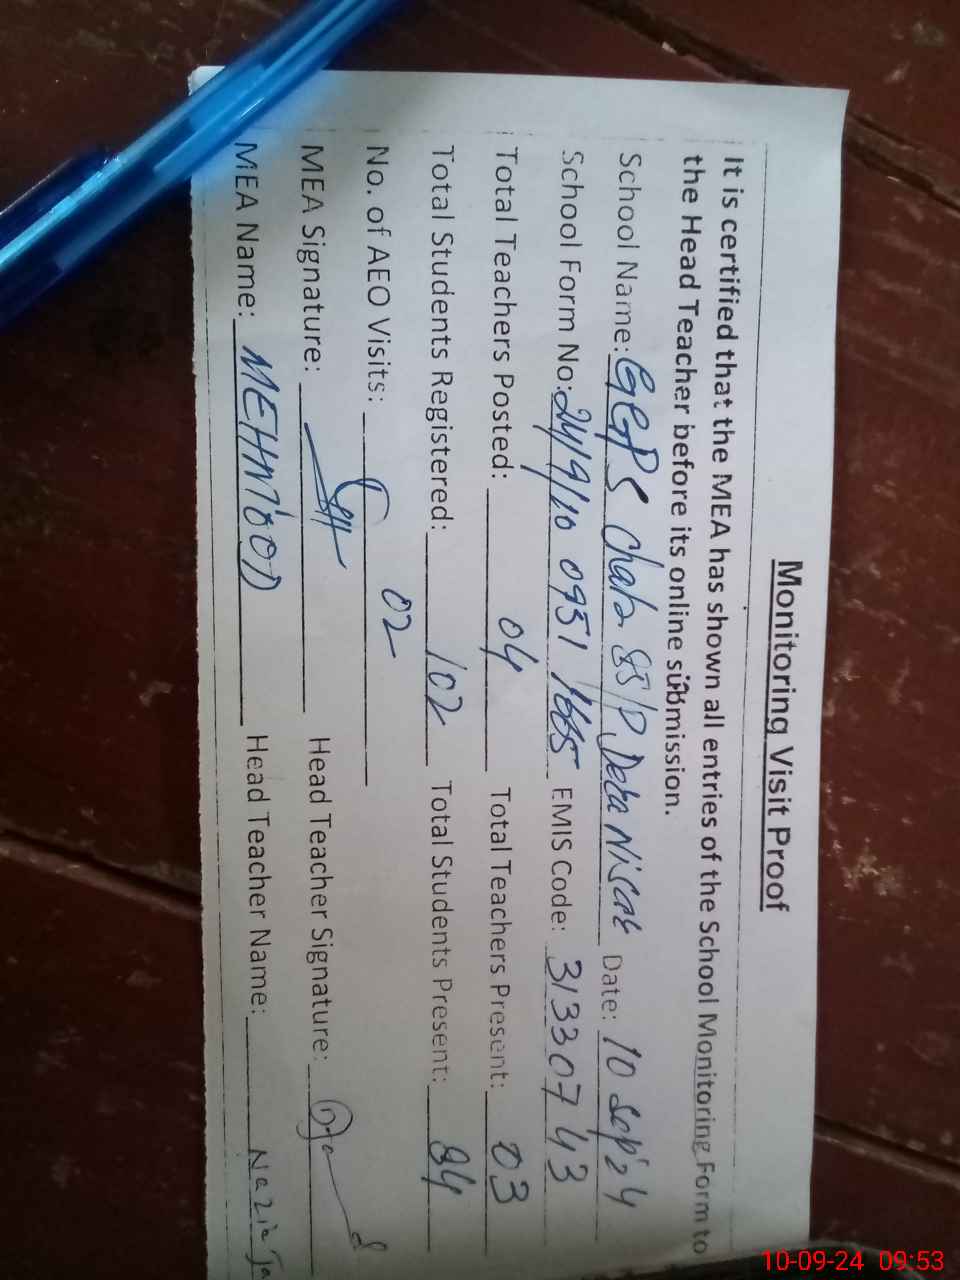 Monitoring Visit Proof
It is certified that the MEA has shown all entries of the School Monitoring Form to
the Head Teacher before its online submission.
School Name: GEPS Chak 85/P Deba Date: 10 Sep'24
School Form No: 2419110 0951 1665 EMIS Code: 31330743
Total Teachers Posted: 04 Total Teachers Present: 03
Total Students Registered: 102 Total Students Present: 84
No. of AEO Visits: 02
MEA Signature: Head Teacher Signature:
MEA Name: MEHMOOD Head Teacher Name: Nazia
10-09-24 09:53